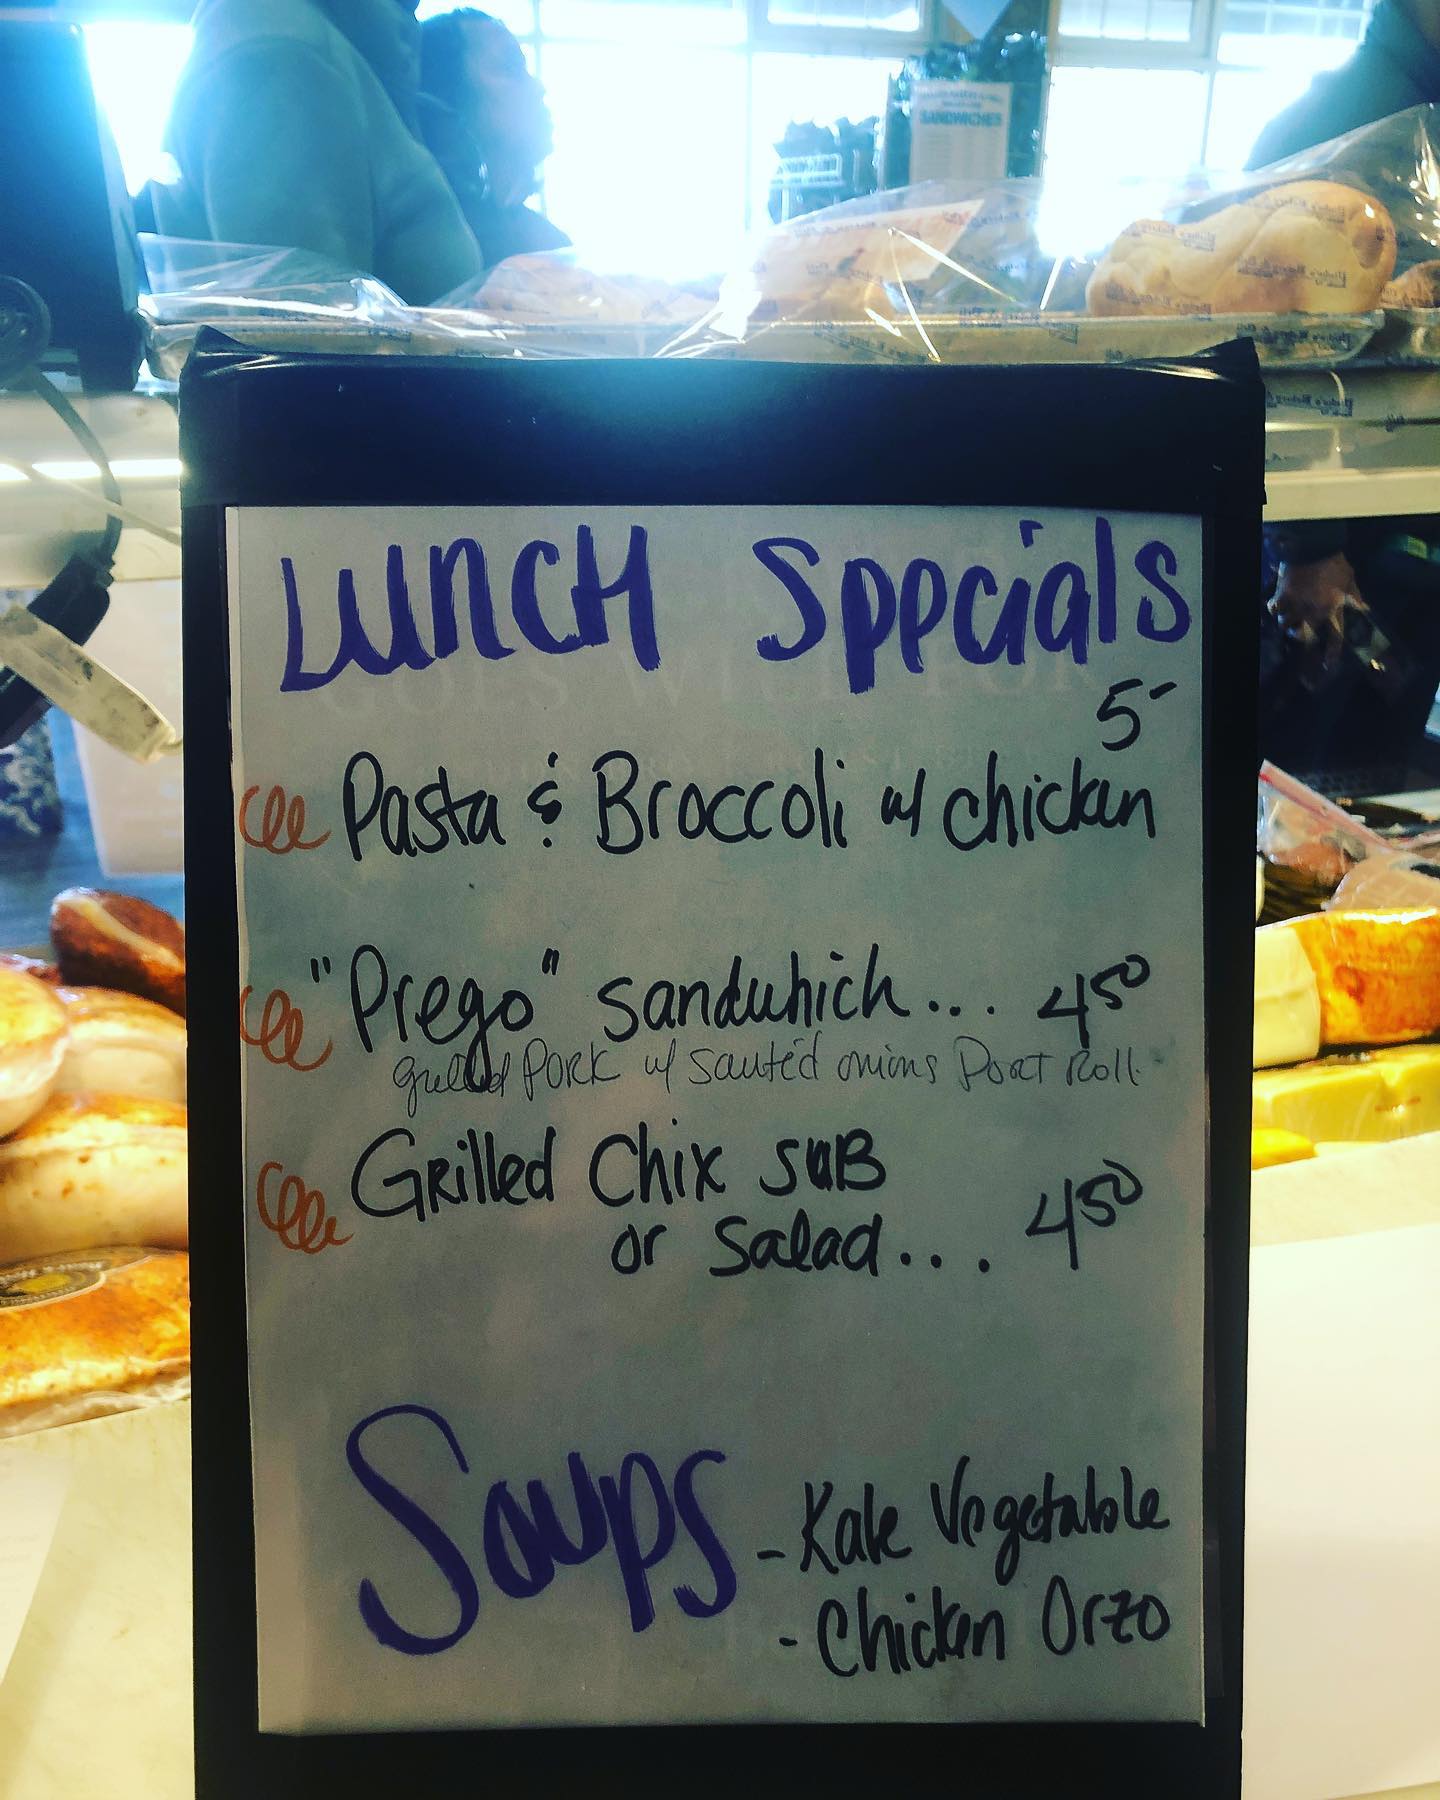 SANDWICHES
Lunch Specials
5-
Pasta & Broccoli w/ chicken
"Prego" Sandwhich... 4 50
grilled Pork w/ sautéd onions Port Roll
Grilled Chix Sub
or Salad... 4 50
Soups - Kale Vegetable
- Chicken Orzo